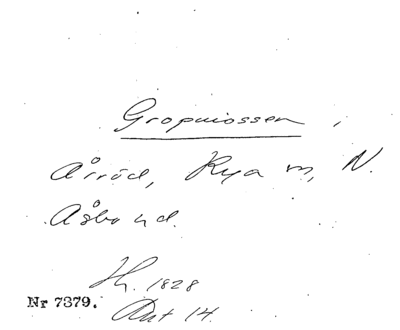 Gropmossen,
Årröd, Rya sn, N.
Åsbo hd.
H. 1828
Nr 7379.
Akt 14.